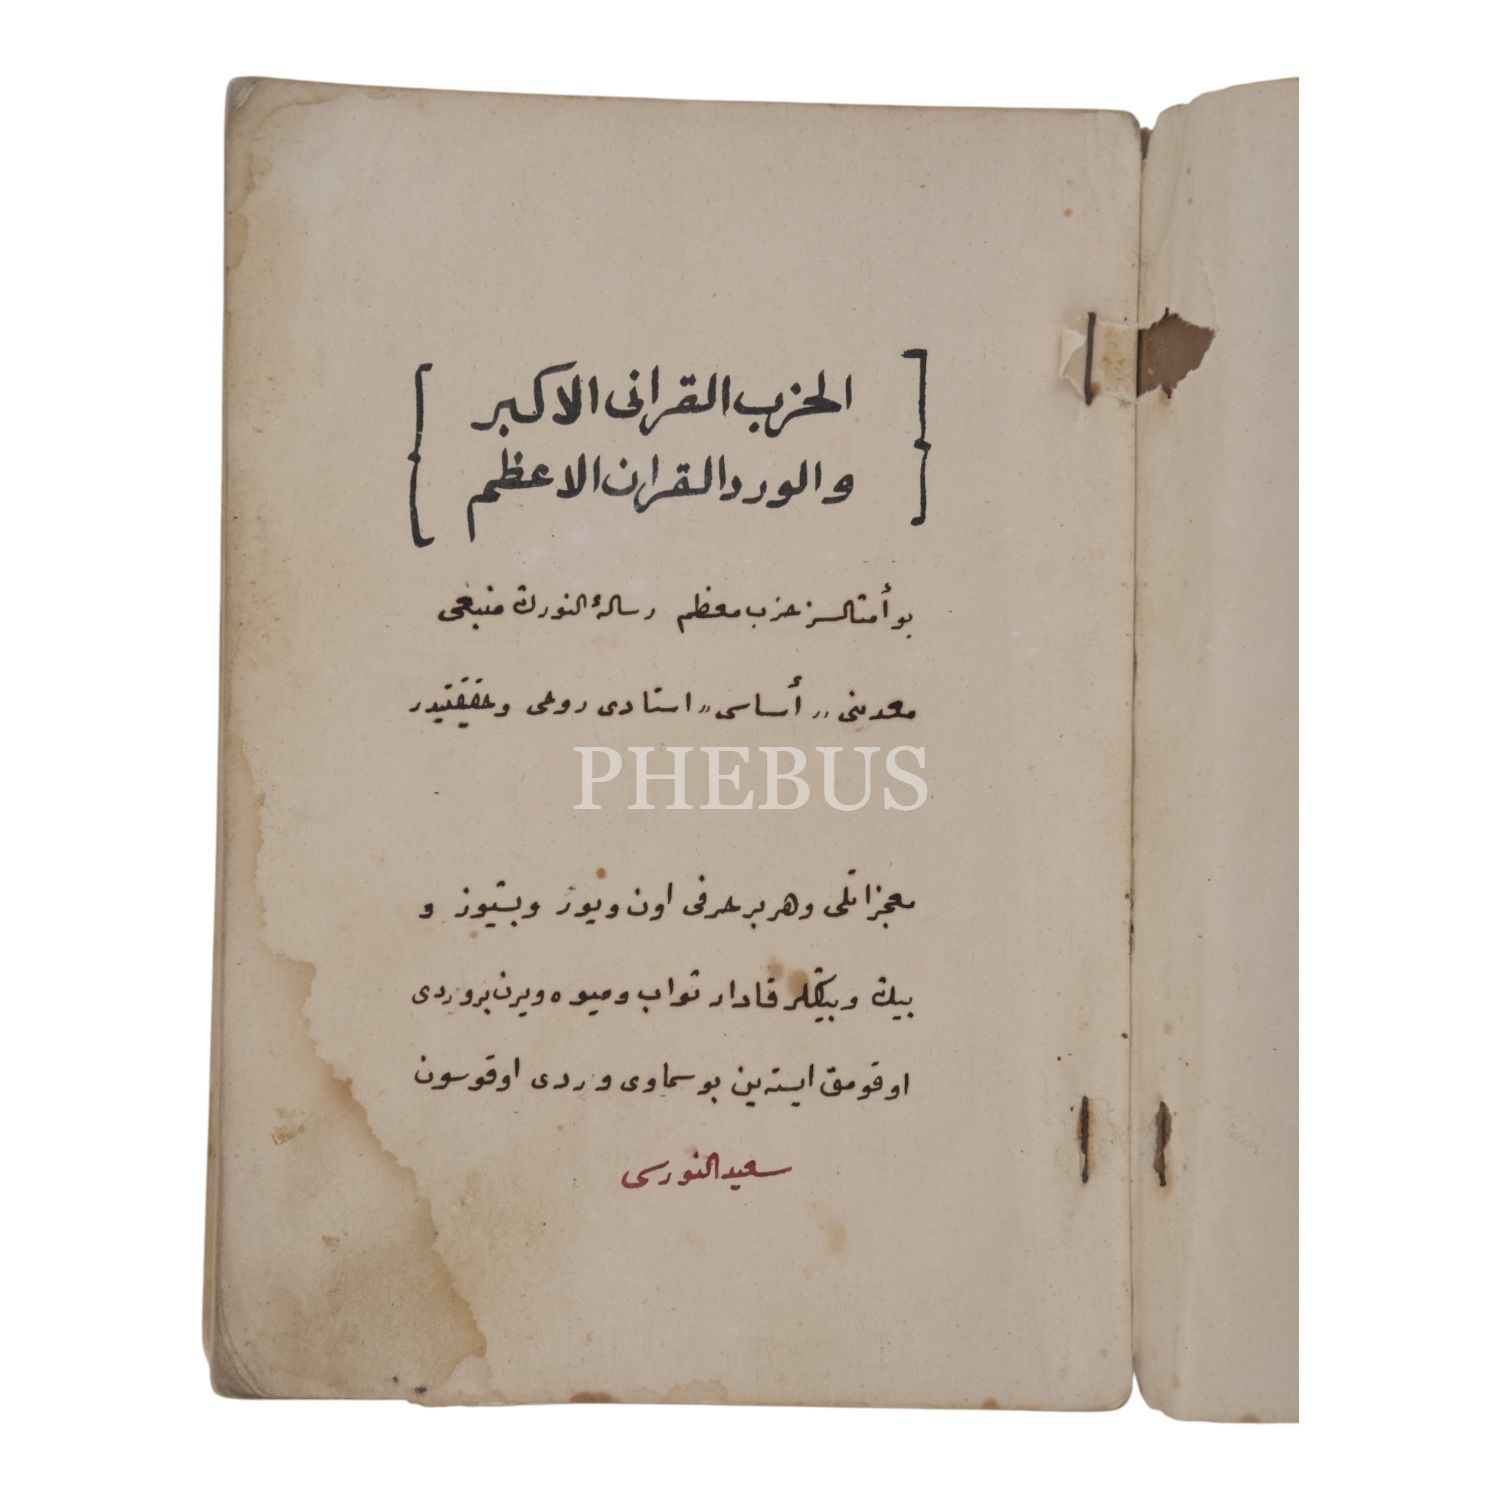 الحزب القرانى الاكبر
والورد القران الاعظم
بو أمثالسز حزب معظم رسالۀ النورك منبعى
معدنى ،، أساسى ،، استادى روحى وحقيقتيدر
PHEBUS
معجزاتلى وهر بر حرفى اون ويوز وبشيوز و
بيك وبيكلر قادار ثواب وميوه ويرن بر وردى
اوقومق ايسته ين بو سماوى وردى اوقوسون
سعيد النورسى